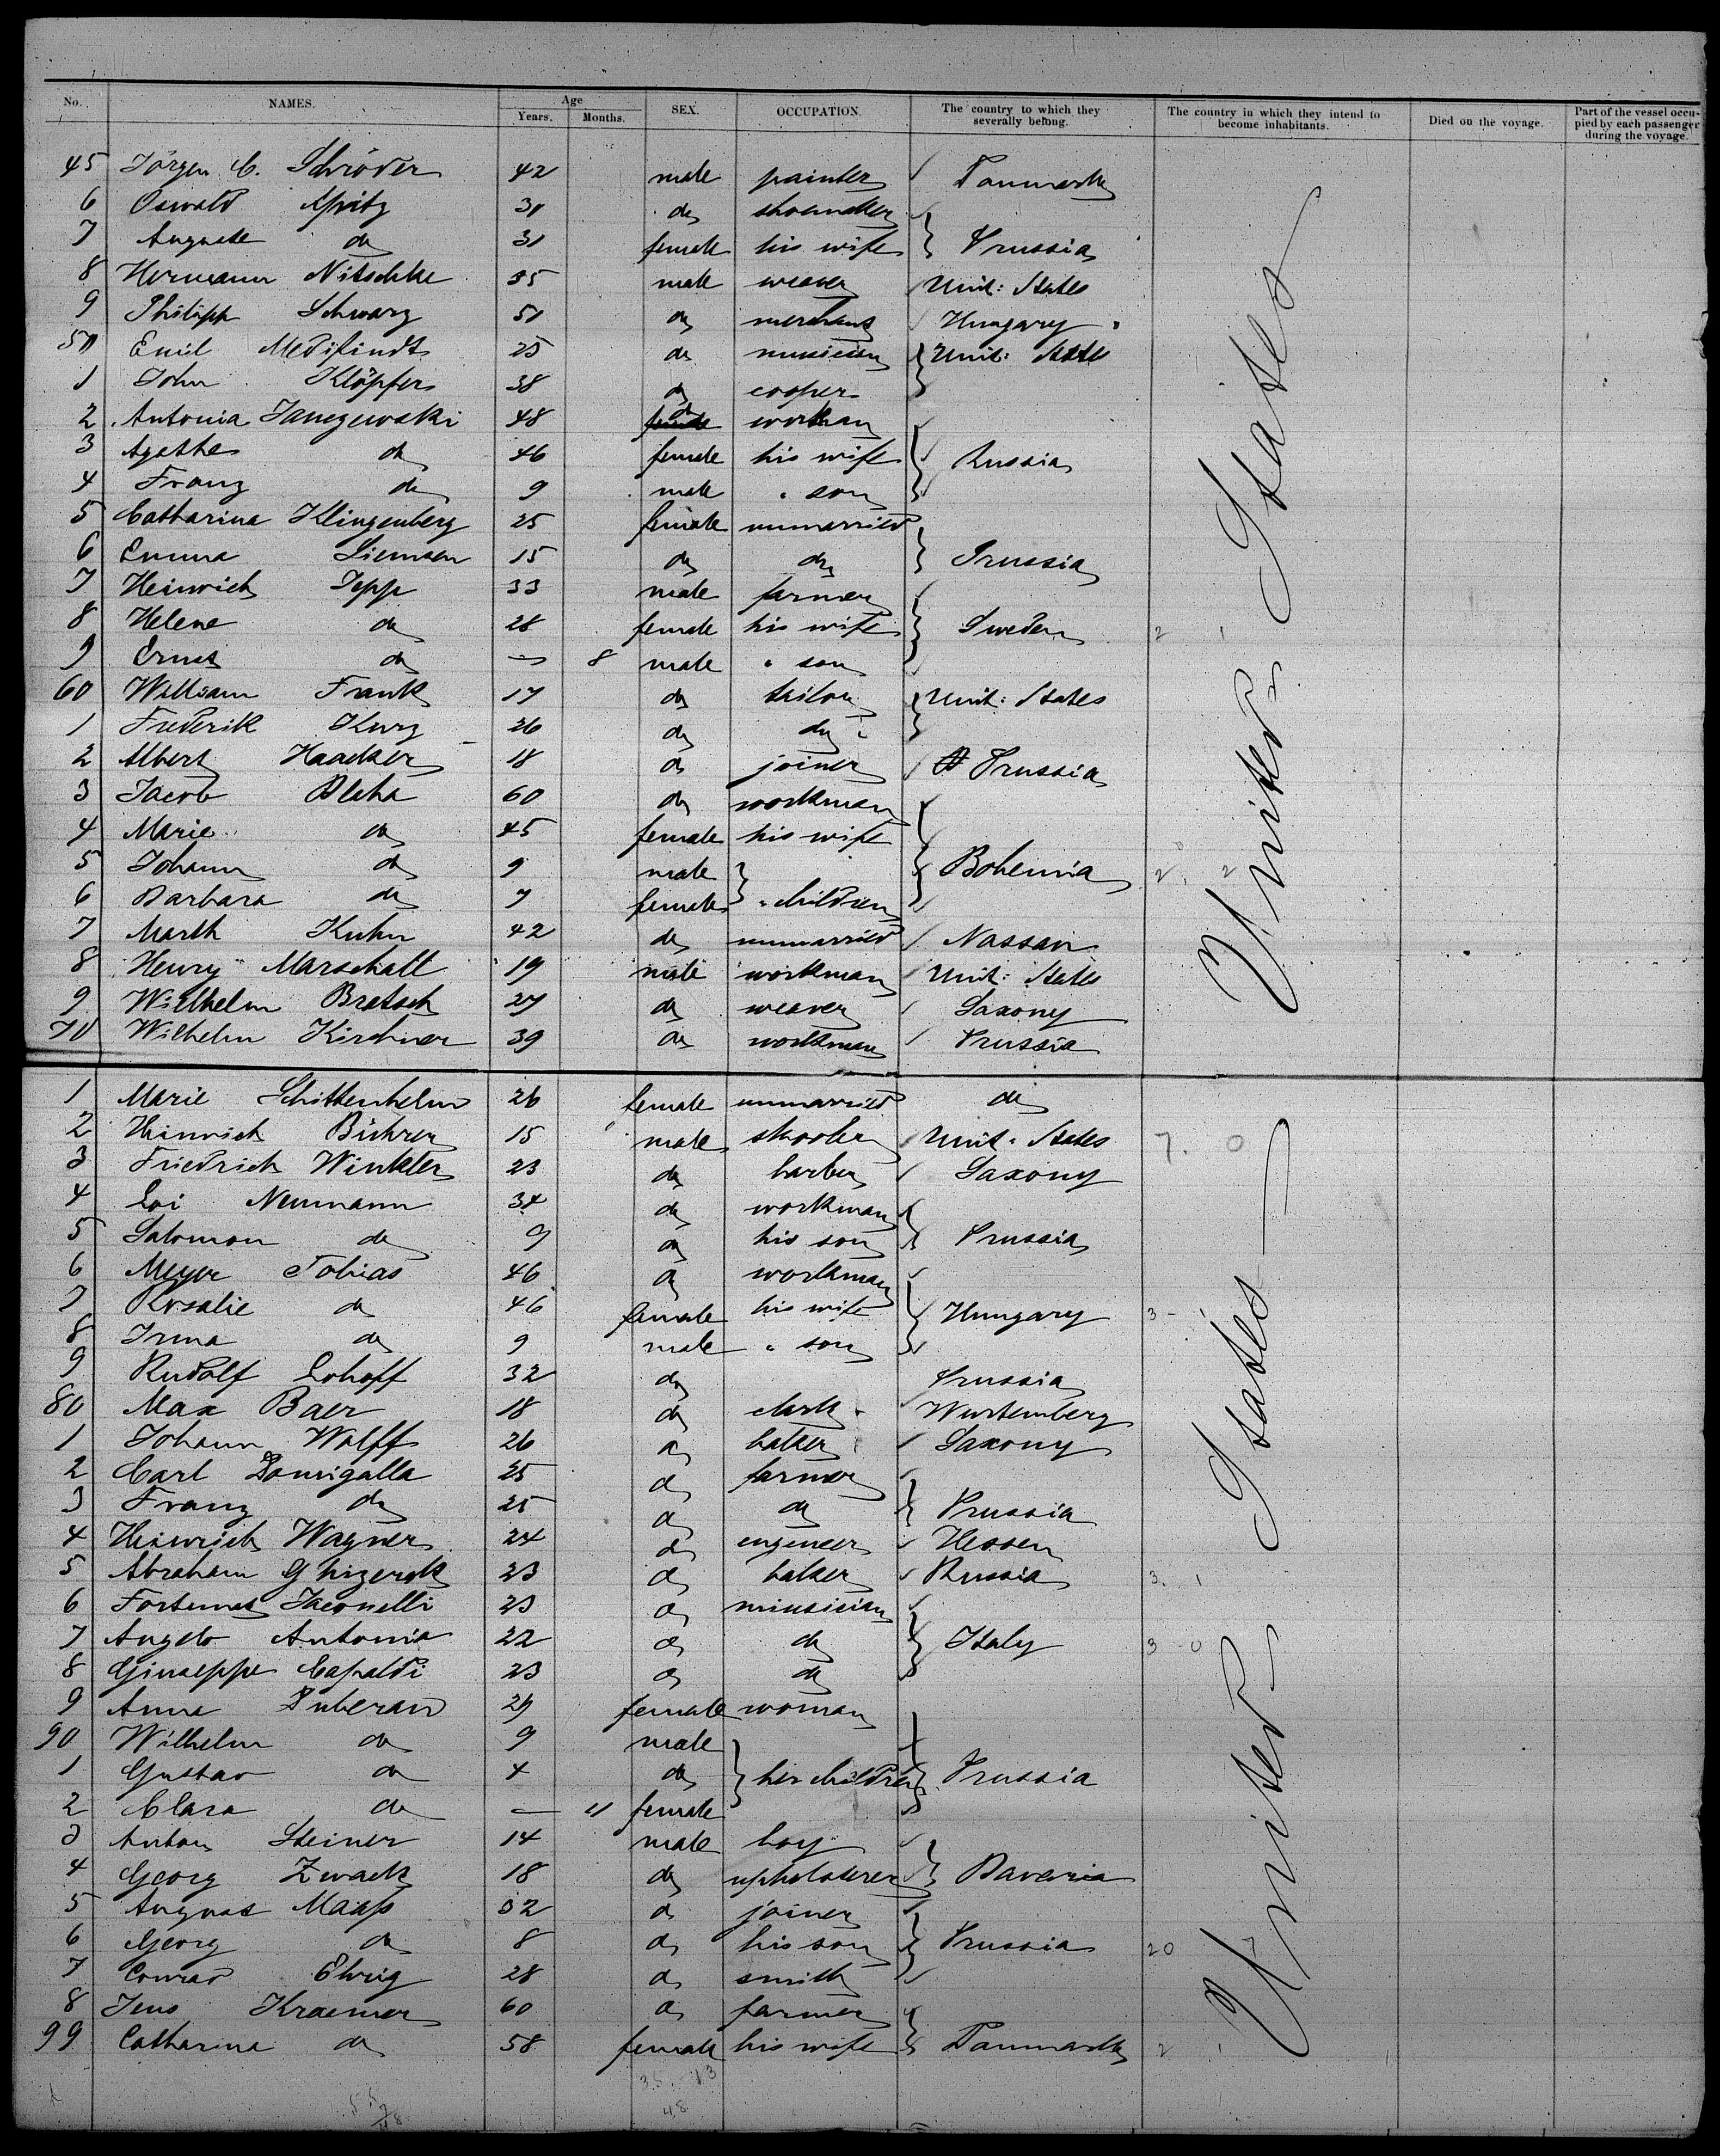 No. NAMES. Age Years. Months. SEX. OCCUPATION. The country to which they severally belong. The country in which they intend to become inhabitants. Died on the voyage. Part of the vessel occupied by each passenger during the voyage.
45 Jörgen C. Schröder 42 male painter Danmark
6 Oswald 31 do shoemaker
7 Auguste do 31 female his wife Prussia
8 Hermann Nitschke 35 male weaver Unit: States
9 Philipp Schwarz 51 do merchant Hungary
50 Emil 25 do musician Unit: States
1 John Klöpfer 38 do cooper
2 Antonia Janczewski 48 do workman
3 Agathe do 46 female his wife Russia
4 Franz do 9 male " son
5 Catharina Klingenberg 25 female unmarried
6 Emma Siemsen 15 do do Prussia
7 Heinrich Jepp 33 male farmer
8 Helene do 28 female his wife Sweden 2 1
9 Ernst do — 8 male " son
60 William Frank 17 do tailor Unit: States
1 Frederik Kurz 26 do do
2 Albert Haacker 18 do joiner Prussia
3 Jacob Blaha 60 do workman
4 Marie do 45 female his wife
5 Johann do 9 male Bohemia 2 2
6 Barbara do 7 female " children
7 Marth Kuhn 42 do unmarried Nassau
8 Henry Marschall 19 male workman Unit: States
9 Wilhelm Bretsch 27 do weaver Saxony
70 Wilhelm Kirchner 39 do workman Prussia
United States
1 Marie Schittenhelm 26 female unmarried do
2 Heinrich Bührer 15 male Unit: States 7. 0
3 Friedrich Winkler 23 do barber Saxony
4 Neumann 34 do workman
5 Salomon do 9 do his son Prussia
6 Meyer Tobias 46 do workman
7 Rosalie do 46 female his wife Hungary 3 -
8 Irma do 9 male " son
9 Rudolf Lohoff 32 do Prussia
80 Max Baer 18 do clerk Wurtemberg
1 Johann Wolff 26 do baker Saxony
2 Carl Domigalla 25 do farmer
3 Franz do 25 do do Prussia
4 Heinrich Wagner 24 do engeneer Hessen
5 Abraham 23 do baker Russia 3. 1
6 Jaconelli 23 do musician
7 Angelo Antonia 22 do do Italy 3 0
8 Giuseppe Capaldi 23 do do
9 Anna 29 female woman
90 Wilhelm do 9 male
1 Gustav do 4 do her children Prussia
2 Clara do — 11 female
3 Anton Steiner 14 male boy
4 Georg Zwack 18 do upholsterer Bavaria
5 August Maaß 32 do joiner
6 Georg do 8 do his son Prussia 20
7 Conrad Ehrig 28 do smith
8 Jens Kraemer 60 do farmer
99 Catharina do 58 female his wife Danmark 2 1
United States
35 13
48